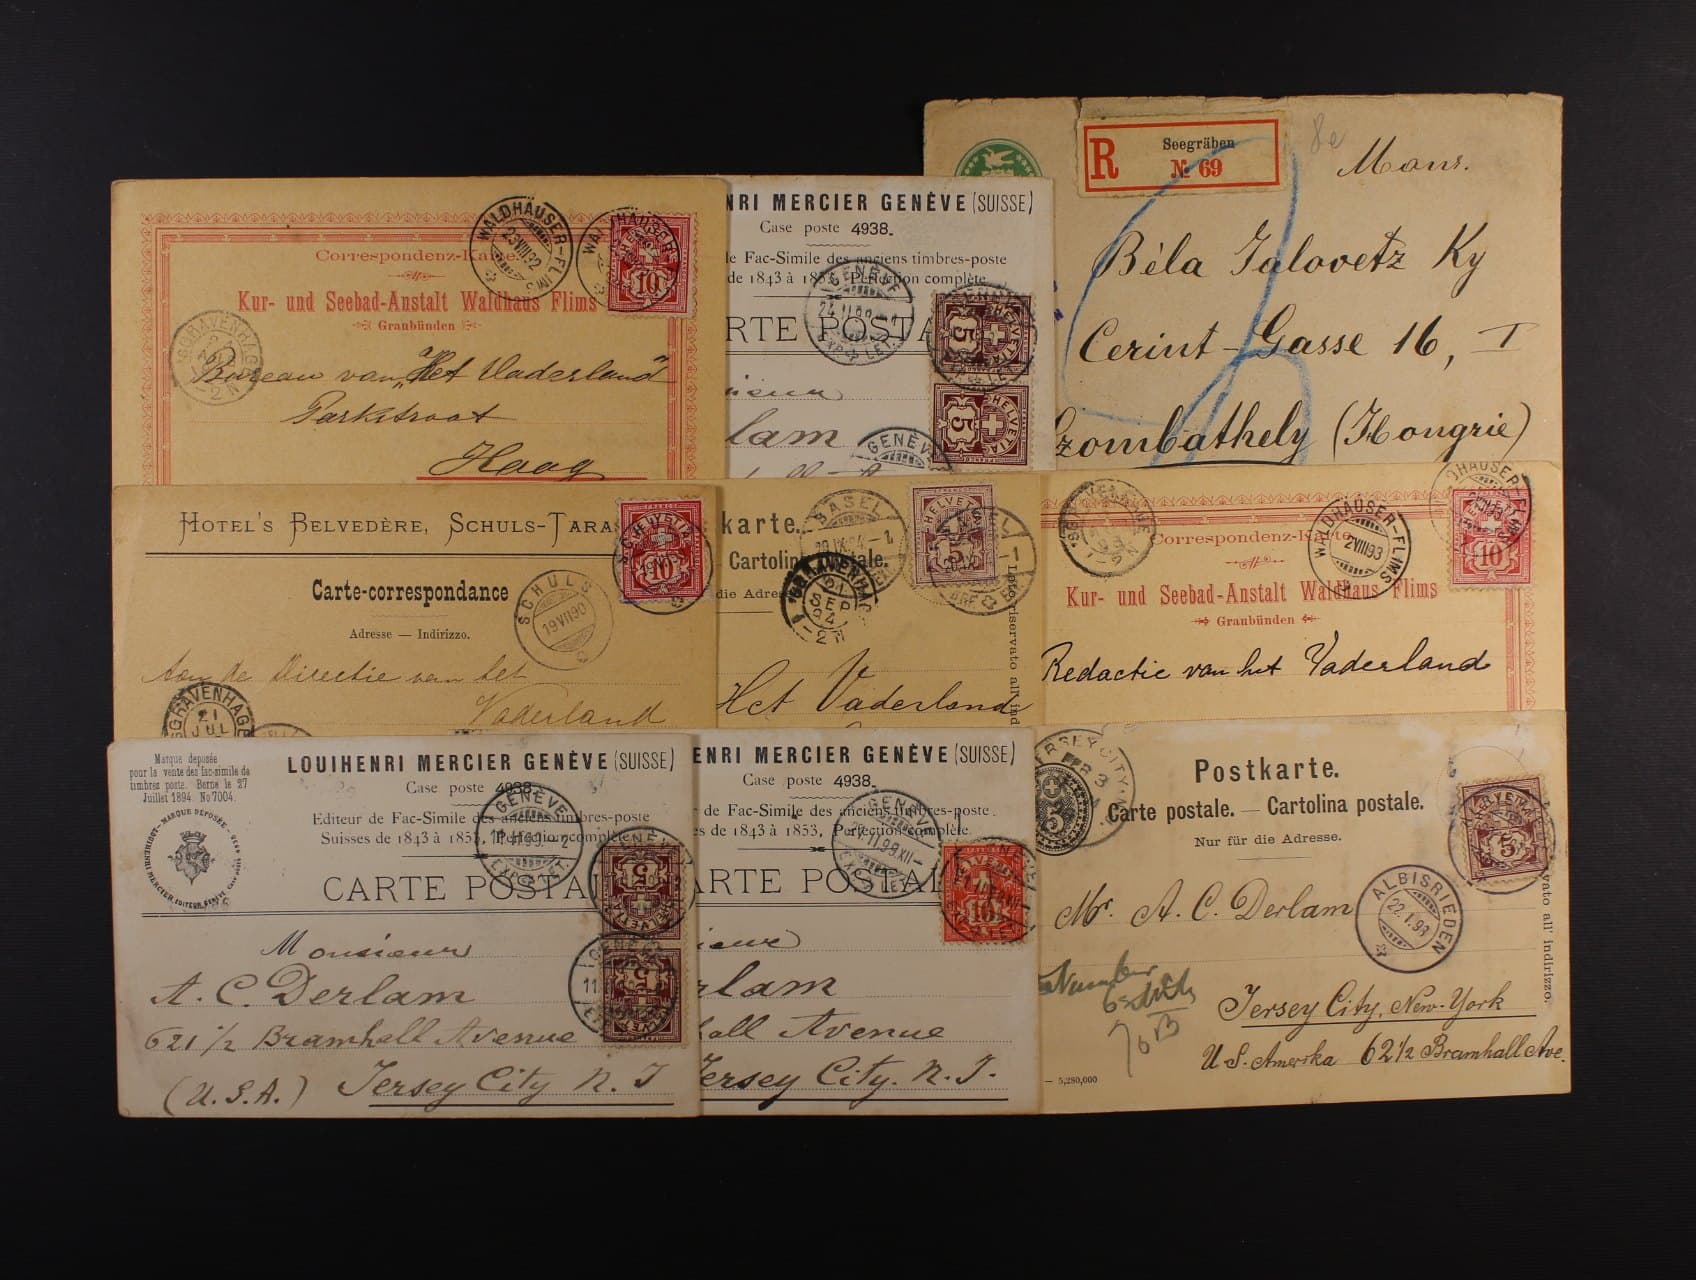 Correspondenz-Karte.
Kur- und Seebad-Anstalt Waldhaus Flims
Graubünden
WALDHÄUSER-FLIMS
23 VIII 92
10
Bureau van "Het Vaderland"
Parkstraat
Haag
NRI MERCIER GENÈVE (SUISSE)
Case poste 4938.
le Fac-Simile des anciens timbres-poste
de 1843 à 1853, Perfection complète
RTE POSTA
GENÈVE
EXP. LET.
HELVETIA
5
HELVETIA
5
lam
GENÈV
R
Seegräben
№ 69
8e
Mons.
Béla Jalovetz Ky
Cerint-Gasse 16, I
Szombathely (Hongrie)
HOTEL'S BELVEDÈRE, SCHULS-TARAS
Carte-correspondance
Adresse — Indirizzo.
SCHULS
19 VII 90
HELVETIA
10
Aan de Directie van het
Vaderland
'SGRAVENHAGE
21
JUL
karte.
Cartolina postale.
die Adres
BASEL
'SGRAVENHAGE
HELVETIA
5
Het Vaderland
Correspondenz-Karte
Kur- und Seebad-Anstalt Waldhaus Flims
Graubünden
WALDHÄUSER-FLIMS
2 VIII 93
10
Redactie van het Vaderland
Marque déposée
pour la vente des fac-simile de
timbres poste. Berne le 27
Juillet 1894. No 7004.
LOUIHENRI MERCIER GENÈVE (SUISSE)
Case poste 4938.
Editeur de Fac-Simile des anciens timbres-poste
Suisses de 1843 à 1853, Perfection complète
CARTE POSTA
GENÈVE
EXP. LET.
5
5
Monsieur
A. C. Derlam
621/2 Bramhall Avenue
(U.S.A.) Jersey City N. J
ENRI MERCIER GENÈVE (SUISSE)
Case poste 4938.
r de Fac-Simile des anciens timbres-poste
es de 1843 à 1853, Perfection complète
RTE POSTAL
GENÈVE
10
ieur
rlam
hall Avenue
Jersey City. N. J.
JERSEY CITY
FEB 3
Postkarte.
Carte postale. — Cartolina postale.
Nur für die Adresse.
5
ALBISRIEDEN
22.I.93
Mr. A. C. Derlam
Number
Jersey City, New-York
U S. Amerika 62 1/2 Bramhall Ave.
— 5,280,000
vato all' indirizzo.